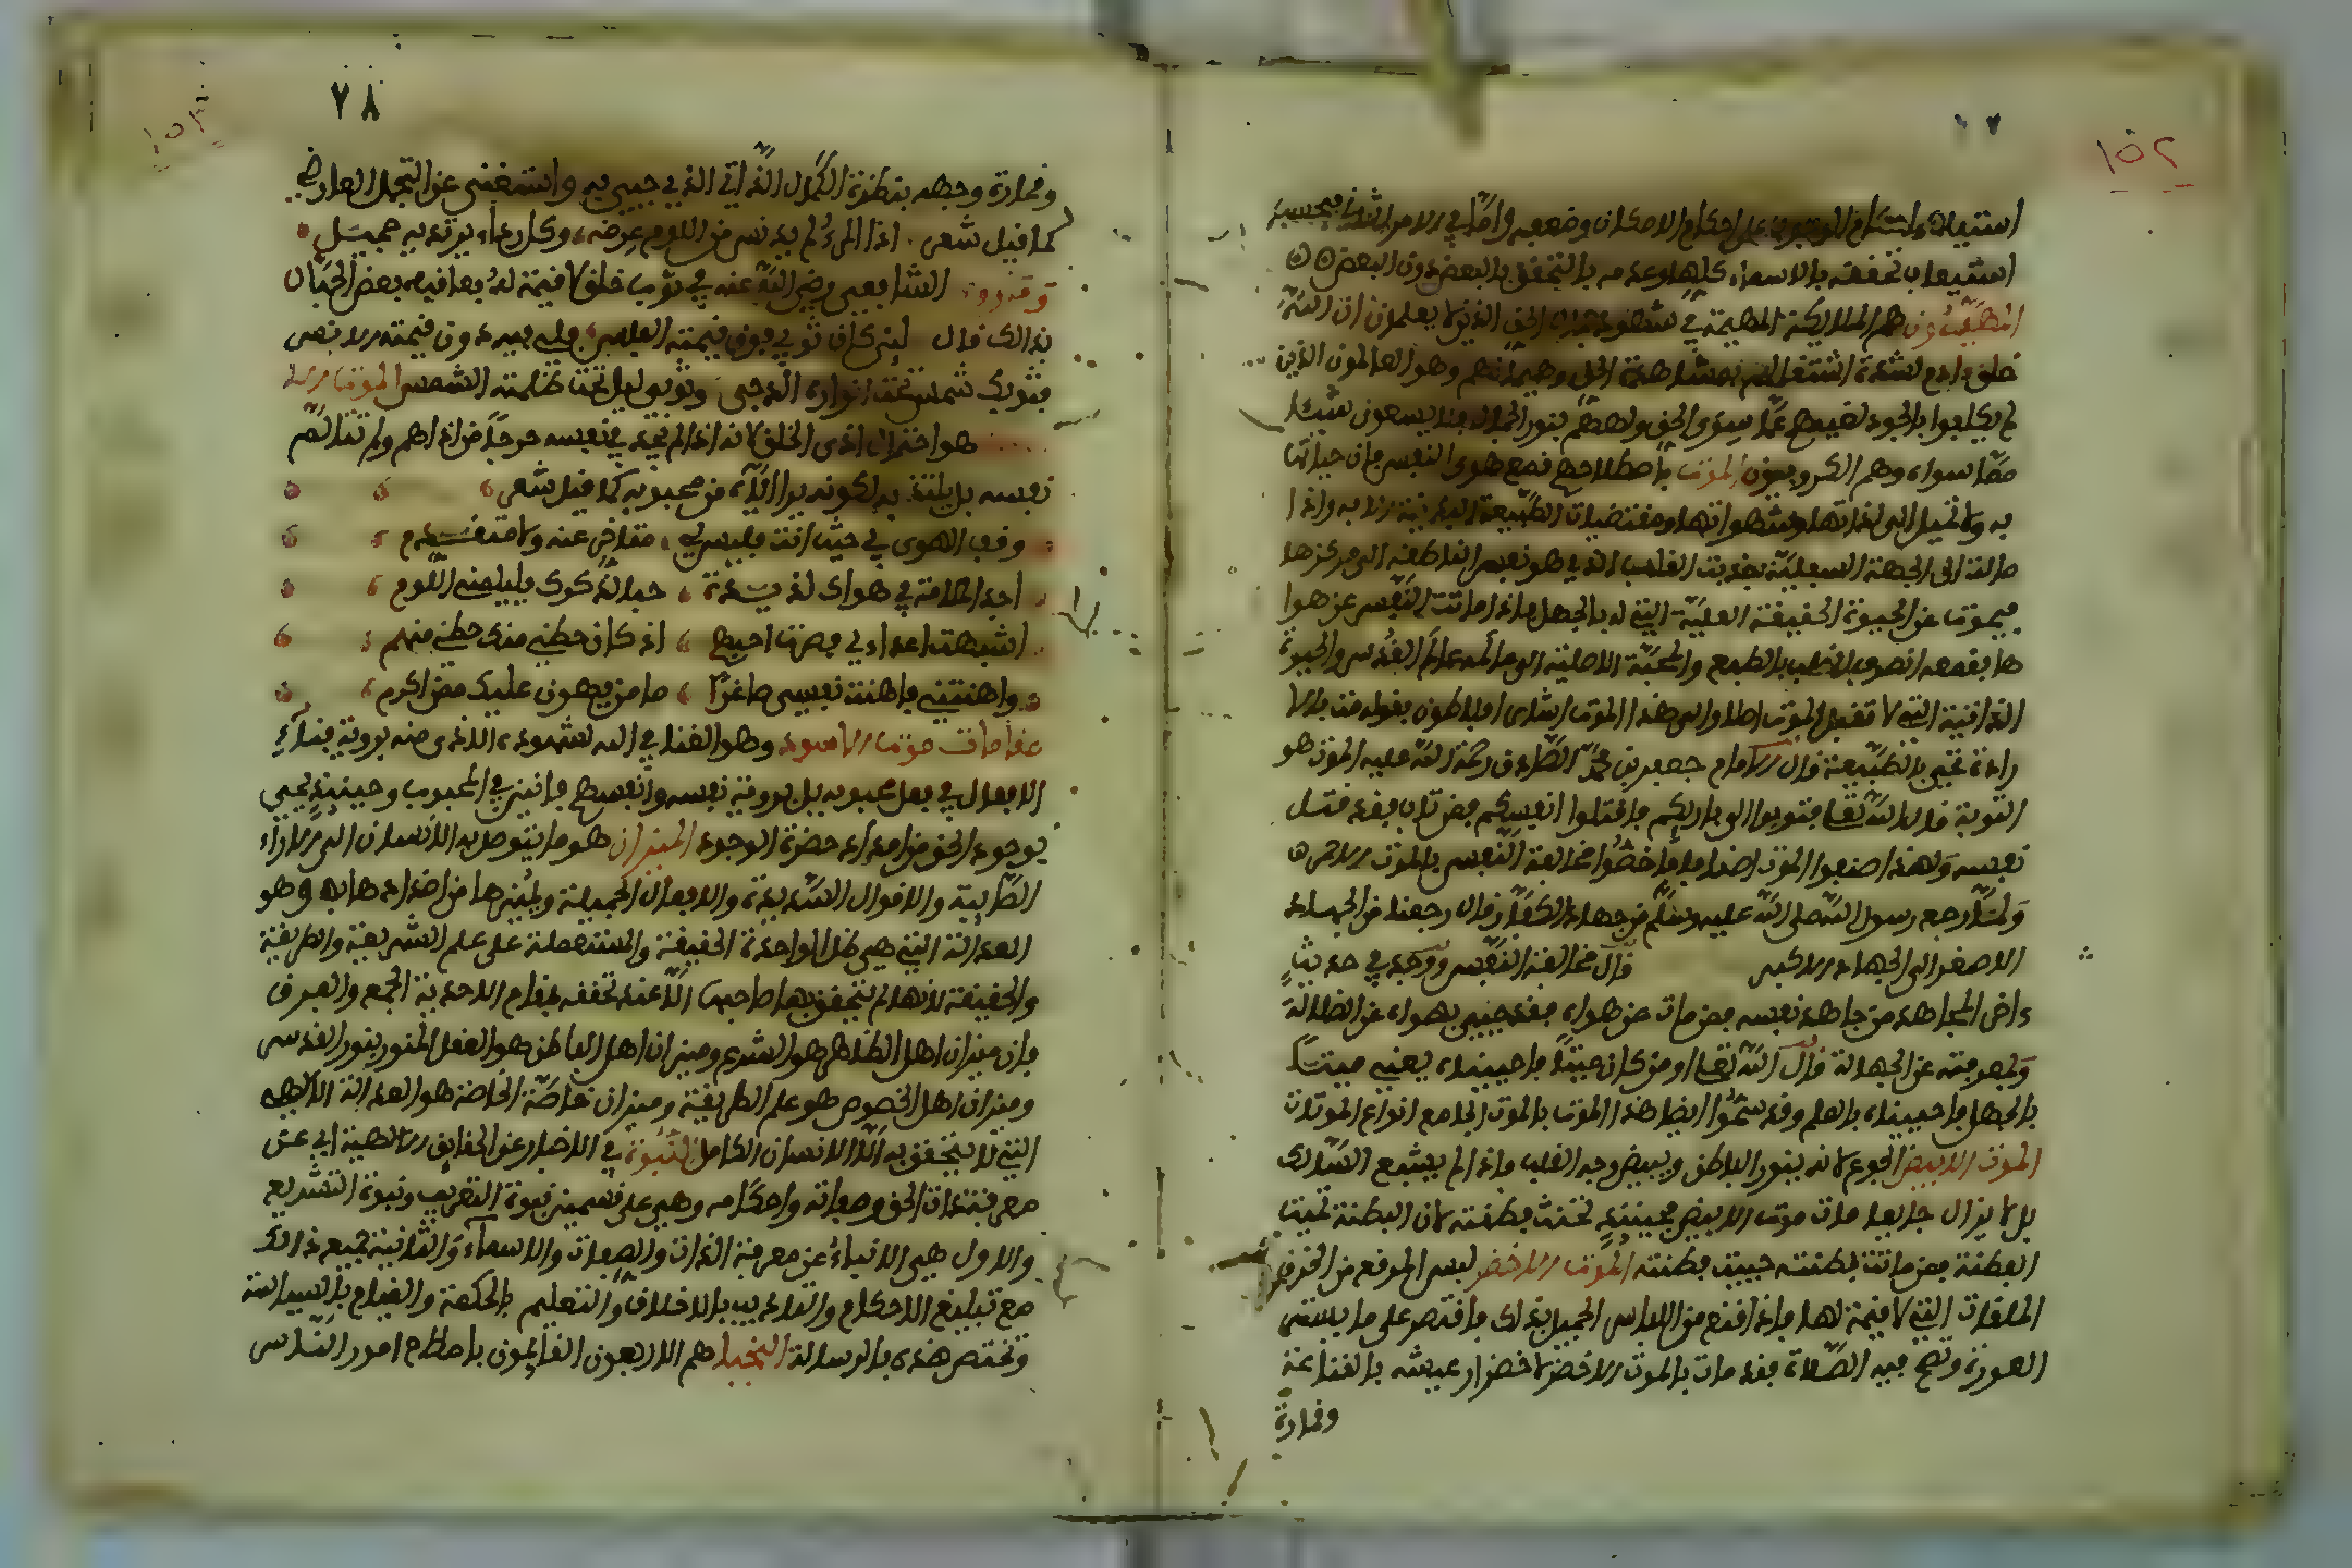 ١٥٢
استيلاء احكام الوجوب على احكام الامكان وضعفه واما في الامر الثاني فبحسب
استيعاب تحققه بالاسماء كلها وعدمه بالتحقق بالبعض دون البعض
المهيمون هم الملايكة المهيمة في شهود جمال الحق الذين لا يعلمون ان الله
خلق ادم لشدة اشتغالهم بمشاهدة الحق وهيمانهم وهو العالمون الذين
لم يكلفوا بالسجود لغيبتهم عما سوى الحق وولههم بنور الجمال فلا يسعون شيئا
مما سواه وهم الكروبيون الموت باصطلاحهم قمع هوى النفس فان حياتها
به ولا تميل الى لذاتها وشهواتها ومقتضيات الطبيعة البدنية الا به واذا
مالت الى الجهة السفلية جذبت القلب الذي هو نفس الناطقة الى مركزها
فيموت عن الحيوة الحقيقية العلمية التي له بالجهل فاذا ماتت النفس عن هوا
ها بقمعه انصرف القلب بالطبع والمحبة الاصلية الى عالمه عالم القدس والحيوة
الذاتية التي لا تقبل الموت اصلا والى هذا الموت اشار افلاطون بقوله مت بالا
رادة تحيى بالطبيعة قال الامام جعفر بن محمد الصادق رحمة الله عليه الموت هو
التوبة قال الله تعالى فتوبوا الى باريكم فاقتلوا انفسكم فمن تاب فقد قتل
نفسه ولهذا صنفوا الموت اصنافا فخصوا مخالفة النفس بالموت الاحمر
ولما رجع رسول الله صلى الله عليه وسلم من جهاد الكفار قال رجعنا من الجهاد
الاصغر الى الجهاد الاكبر قال مخالفة النفس وورد في حديث
داخر المجاهد من جاهد نفسه فمن مات عن هواه فقد حيي بهداه عن الضلالة
وبمعرفته عن الجهالة قال الله تعالى اومن كان ميتا فاحييناه يعني ميتا
بالجهل فاحييناه بالعلم وقد سموا ايضا هذا الموت بالموت الجامع انواع الموتات
الموت الابيض الجوع لانه ينور الباطن ويبيض وجه القلب فاذا لم يشبع السالك
بل لا يزال جايعا مات موت الابيض فحينئذ تحيى فطنته لان البطنة تميت
الفطنة فمن ماتت بطنته حييت فطنته الموت الاخضر لبس المرقع من الخرق
الملقات التي لا قيمة لها فاذا قنع من اللباس الجميل بذلك فاقتصر على ما يستر
العورة وتصح فيه الصلاة فقد مات بالموت الاخضر لاخضرار عيشه بالقناعة
ونضارة
٧٨
١٥٣
ونضارة وجهه بنضرة الكمال الذاتي الذي حيي به واستغنى عن التجمل العارضي
كما قيل شعر اذا المرء لم يدنس من اللوم عرضه وكل رداء يرتديه جميل
وقد روى الشافعي رضي الله عنه في ثوب خلق لا قيمة له فعابه بعض الجهال
بذلك فقال لئن كان ثوبي فوق قيمته الفلس فلي فيه دون قيمته الانس
فثوبك شمس تحت انواره الدجى وثوبي ليل تحت ظلمته الشمس الموت الاسود
هو احتمال اذى الخلق لانه اذا لم يجد في نفسه حرجا من اذاهم ولم تتألم
نفسه بل يلتذ به لكونه يراه من محبوبه كما قيل شعر
وقف الهوى بي حيث انت فليس لي متاخر عنه ولا متقدم
اجد الملامة في هواك لذيذة حبا لذكرك فليلمني اللوم
اشبهت اعدائي فصرت احبهم اذ كان حظي منك حظي منهم
واهنتني فاهنت نفسي صاغرا ما من يهون عليك ممن اكرم
فقد مات موت الاسود وهو الفناء في الله لشهوده الاذى منه برؤية فناء
الافعال في فعل محبوبه بل برؤية نفسه وانفسهم فانين في المحبوب وحينئذ يحيى
بوجود الحق من امداد حضرة الوجود الميزان هو ما يتوصل به الانسان الى الاراء
الصايبة والاقوال السديدة والافعال الجميلة ويميزها من اضدادها به وهو
العدالة التي هي ظل الواحدة الحقيقة والمشتملة على علم الشريعة والطريقة
والحقيقة لانها لم يتحقق بها صاحبها الا عند تحققه بمقام الاحدية الجمع والفرق
فان ميزان اهل الظاهر هو الشرع وميزان اهل الباطن هو العقل المنور بنور القدس
وميزان اهل الخصوص هو علم الطريقة وميزان خاصة الخاصة هو العدالة الالهية
التي لا يتحقق به الا الانسان الكامل النبوة هي الاخبار عن الحقايق الالهية اي عن
معرفة ذات الحق وصفاته واحكامه وهي على قسمين نبوة التعريف ونبوة التشريع
والاول هي الانباء عن معرفة الذات والصفات والاسماء والثانية جميع ذلك
مع تبليغ الاحكام والتاديب بالاخلاق والتعليم بالحكمة والقيام بالسياسة
وتختص هذه بالرسالة النجباء هم الاربعون القايمون باصلاح امور الناس